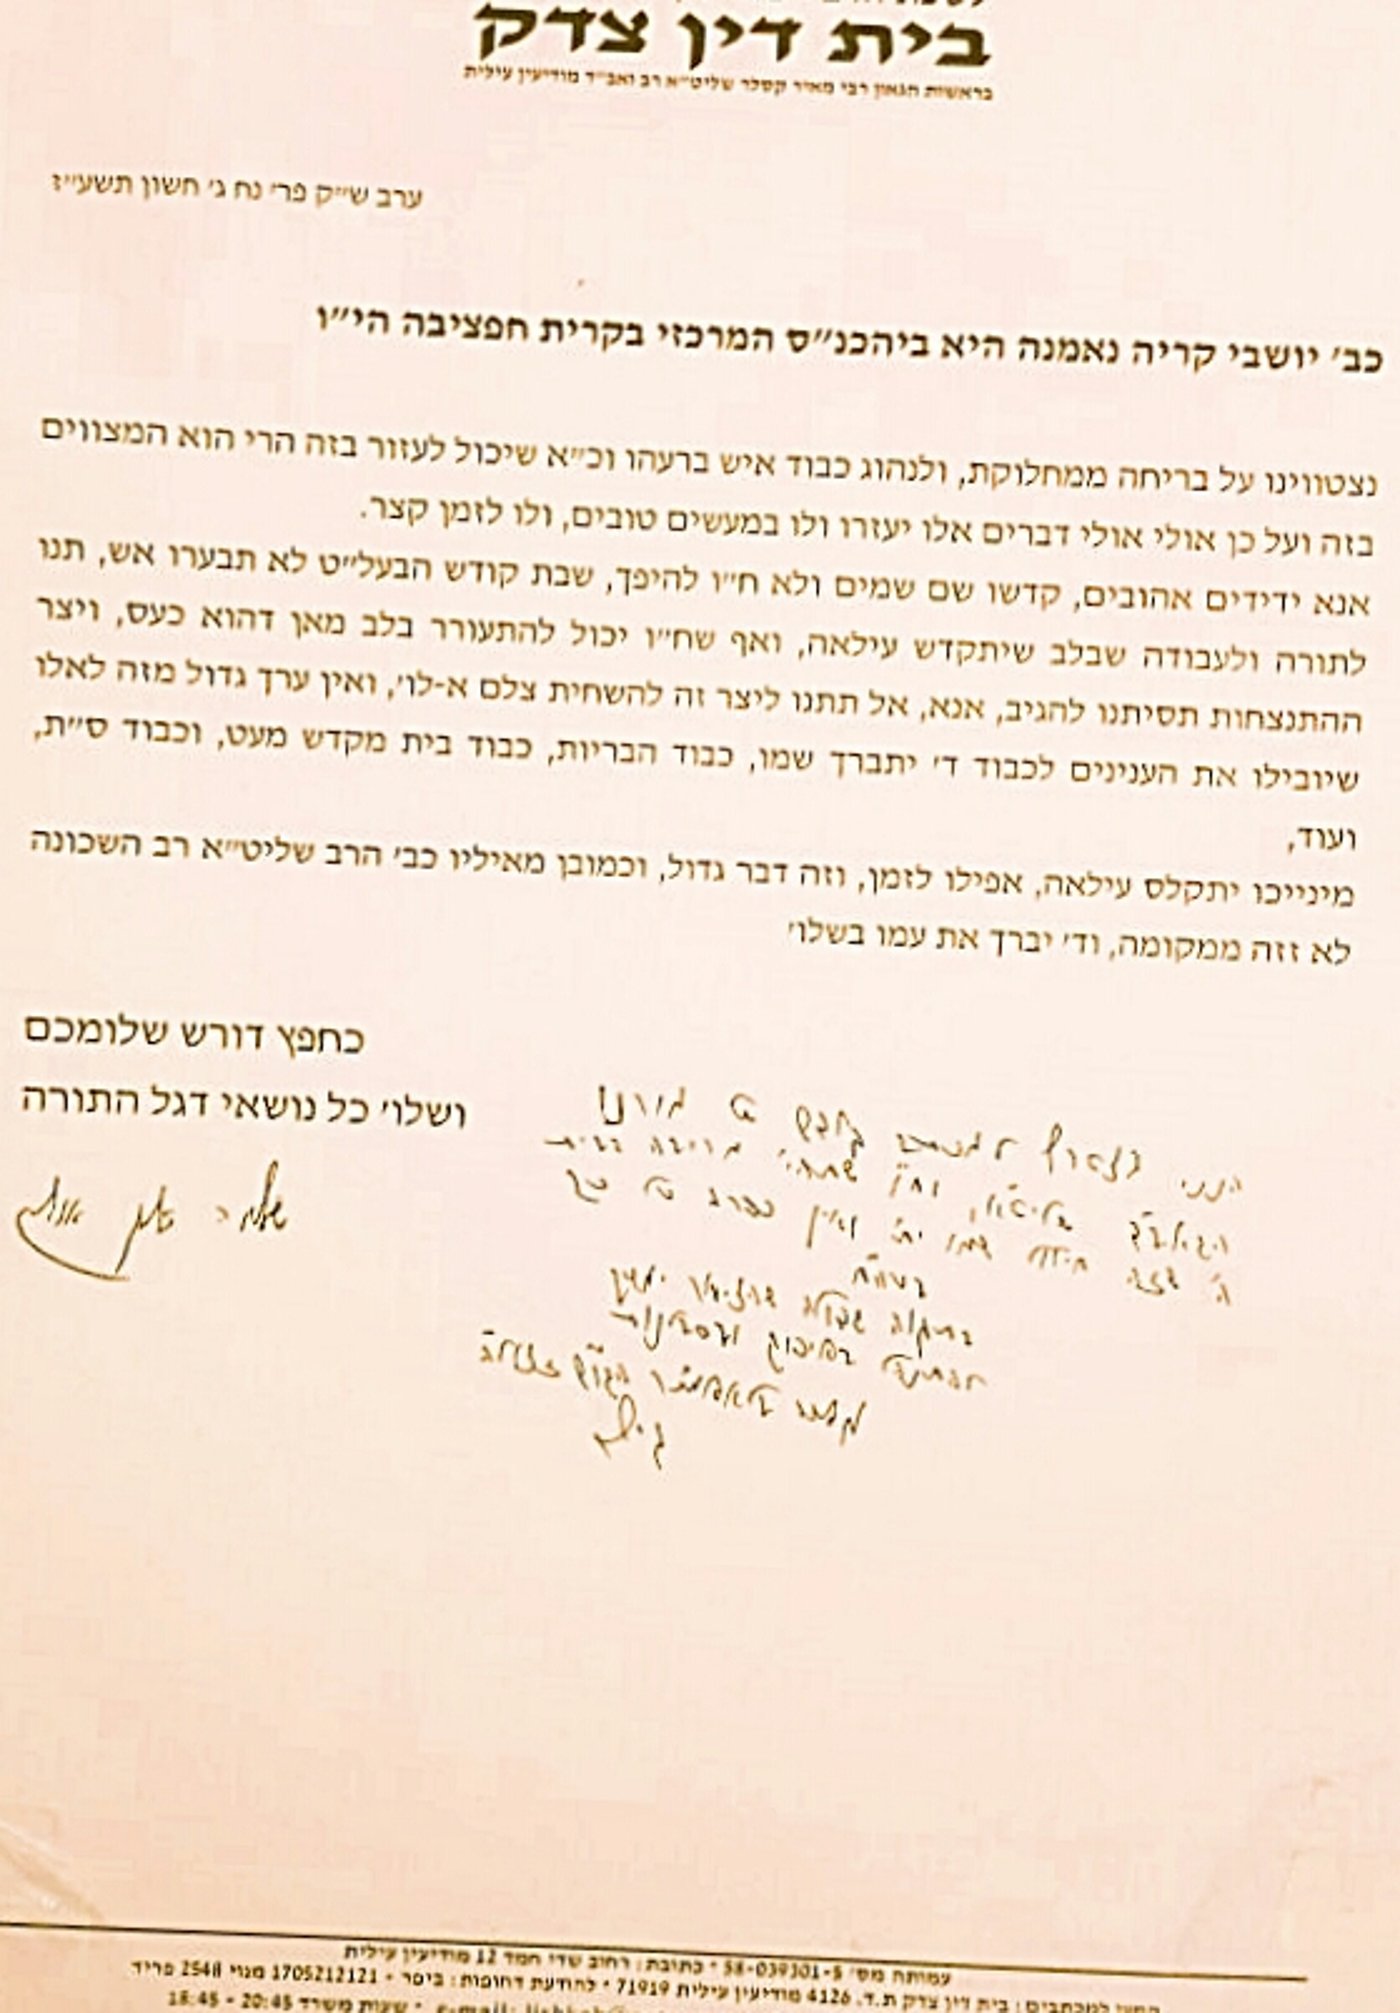 בית דין צדק
בראשות הגאון רבי מאיר קסלר שליט״א רב ואב״ד מודיעין עילית
ערב ש״ק פר׳ נח ג׳ חשון תשע״ז
כב׳ יושבי קריה נאמנה היא ביהכנ״ס המרכזי בקרית חפציבה הי״ו
נצטווינו על בריחה ממחלוקת, ולנהוג כבוד איש ברעהו וכ״א שיכול לעזור בזה הרי הוא המצווים
בזה ועל כן אולי אולי דברים אלו יעזרו ולו במעשים טובים, ולו לזמן קצר.
אנא ידידים אהובים, קדשו שם שמים ולא ח״ו להיפך, שבת קודש הבעל״ט לא תבערו אש, תנו
לתורה ולעבודה שבלב שיתקדש עילאה, ואף שח״ו יכול להתעורר בלב מאן דהוא כעס, ויצר
ההתנצחות תסיתנו להגיב, אנא, אל תתנו ליצר זה להשחית צלם א-לו׳, ואין ערך גדול מזה לאלו
שיובילו את הענינים לכבוד ד׳ יתברך שמו, כבוד הבריות, כבוד בית מקדש מעט, וכבוד ס״ת,
ועוד,
מינייכו יתקלס עילאה, אפילו לזמן, וזה דבר גדול, וכמובן מאיליו כב׳ הרב שליט״א רב השכונה
לא זזה ממקומה, וד׳ יברך את עמו בשלו׳
כחפץ דורש שלומכם
ושלו׳ כל נושאי דגל התורה
הנני מורנו
שליט״א, וח״ו שתהי׳ מריבה בבית
ה׳ שזה חילול שמו ית׳ ואין על כך
עמותה מס׳ 58-039301-5 * כתובת: רחוב שדי חמד 12 מודיעין עילית
למכתבים: בית דין צדק ת.ד. 4126 מודיעין עילית 71919 * להודעת דחופות: ביפר - 1705212121 מנוי 2548 פריד
* שעות משרד 20:45 - 18:45